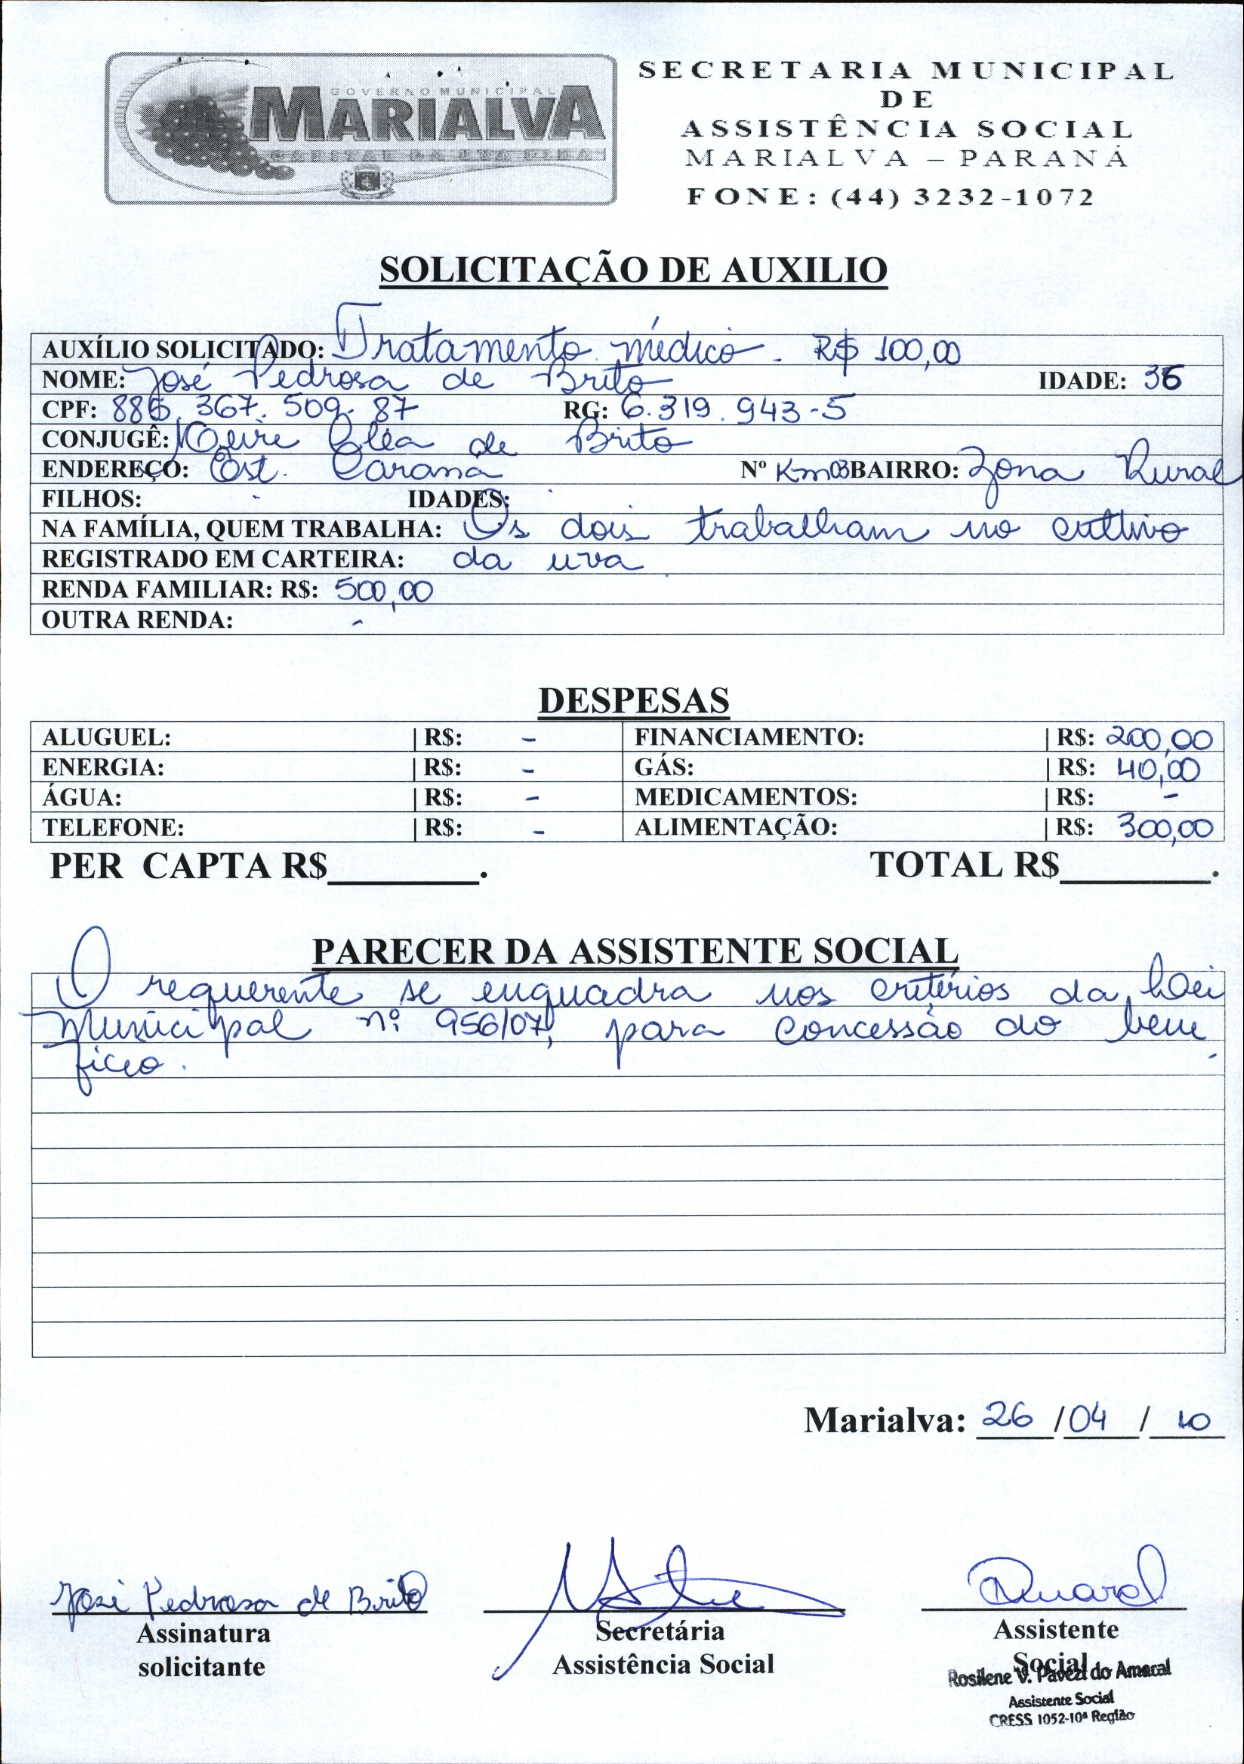 GOVERNO MUNICIPAL
MARIALVA
CAPITAL DA UVA FINA
SECRETARIA MUNICIPAL
DE
ASSISTÊNCIA SOCIAL
MARIALVA – PARANÁ
FONE: (44) 3232-1072
SOLICITAÇÃO DE AUXILIO
AUXÍLIO SOLICITADO: Tratamento médico. R$ 100,00
NOME: José Pedrosa de Brito IDADE: 36
CPF: 886.367.509-87 RG: 6.319.943-5
CONJUGÊ: Cléa de Brito
ENDEREÇO: Est. Nº Km 03 BAIRRO: Zona Rural
FILHOS: - IDADES:
NA FAMÍLIA, QUEM TRABALHA: Os dois trabalham no cultivo
REGISTRADO EM CARTEIRA: da uva
RENDA FAMILIAR: R$: 500,00
OUTRA RENDA: -
DESPESAS
ALUGUEL: | R$: - FINANCIAMENTO: | R$: 200,00
ENERGIA: | R$: - GÁS: | R$: 40,00
ÁGUA: | R$: - MEDICAMENTOS: | R$: -
TELEFONE: | R$: - ALIMENTAÇÃO: | R$: 300,00
PER CAPTA R$________. TOTAL R$________.
PARECER DA ASSISTENTE SOCIAL
O requerente se enquadra nos critérios da Lei
Municipal nº 956/07, para concessão do bene
fício.
Marialva: 26 /04 / 10
José Pedrosa de Brito
Assinatura
solicitante
Secretária
Assistência Social
Assistente
Social
Rosilene V. Pavezi do Amaral
Assistente Social
CRESS 1052-10ª Região